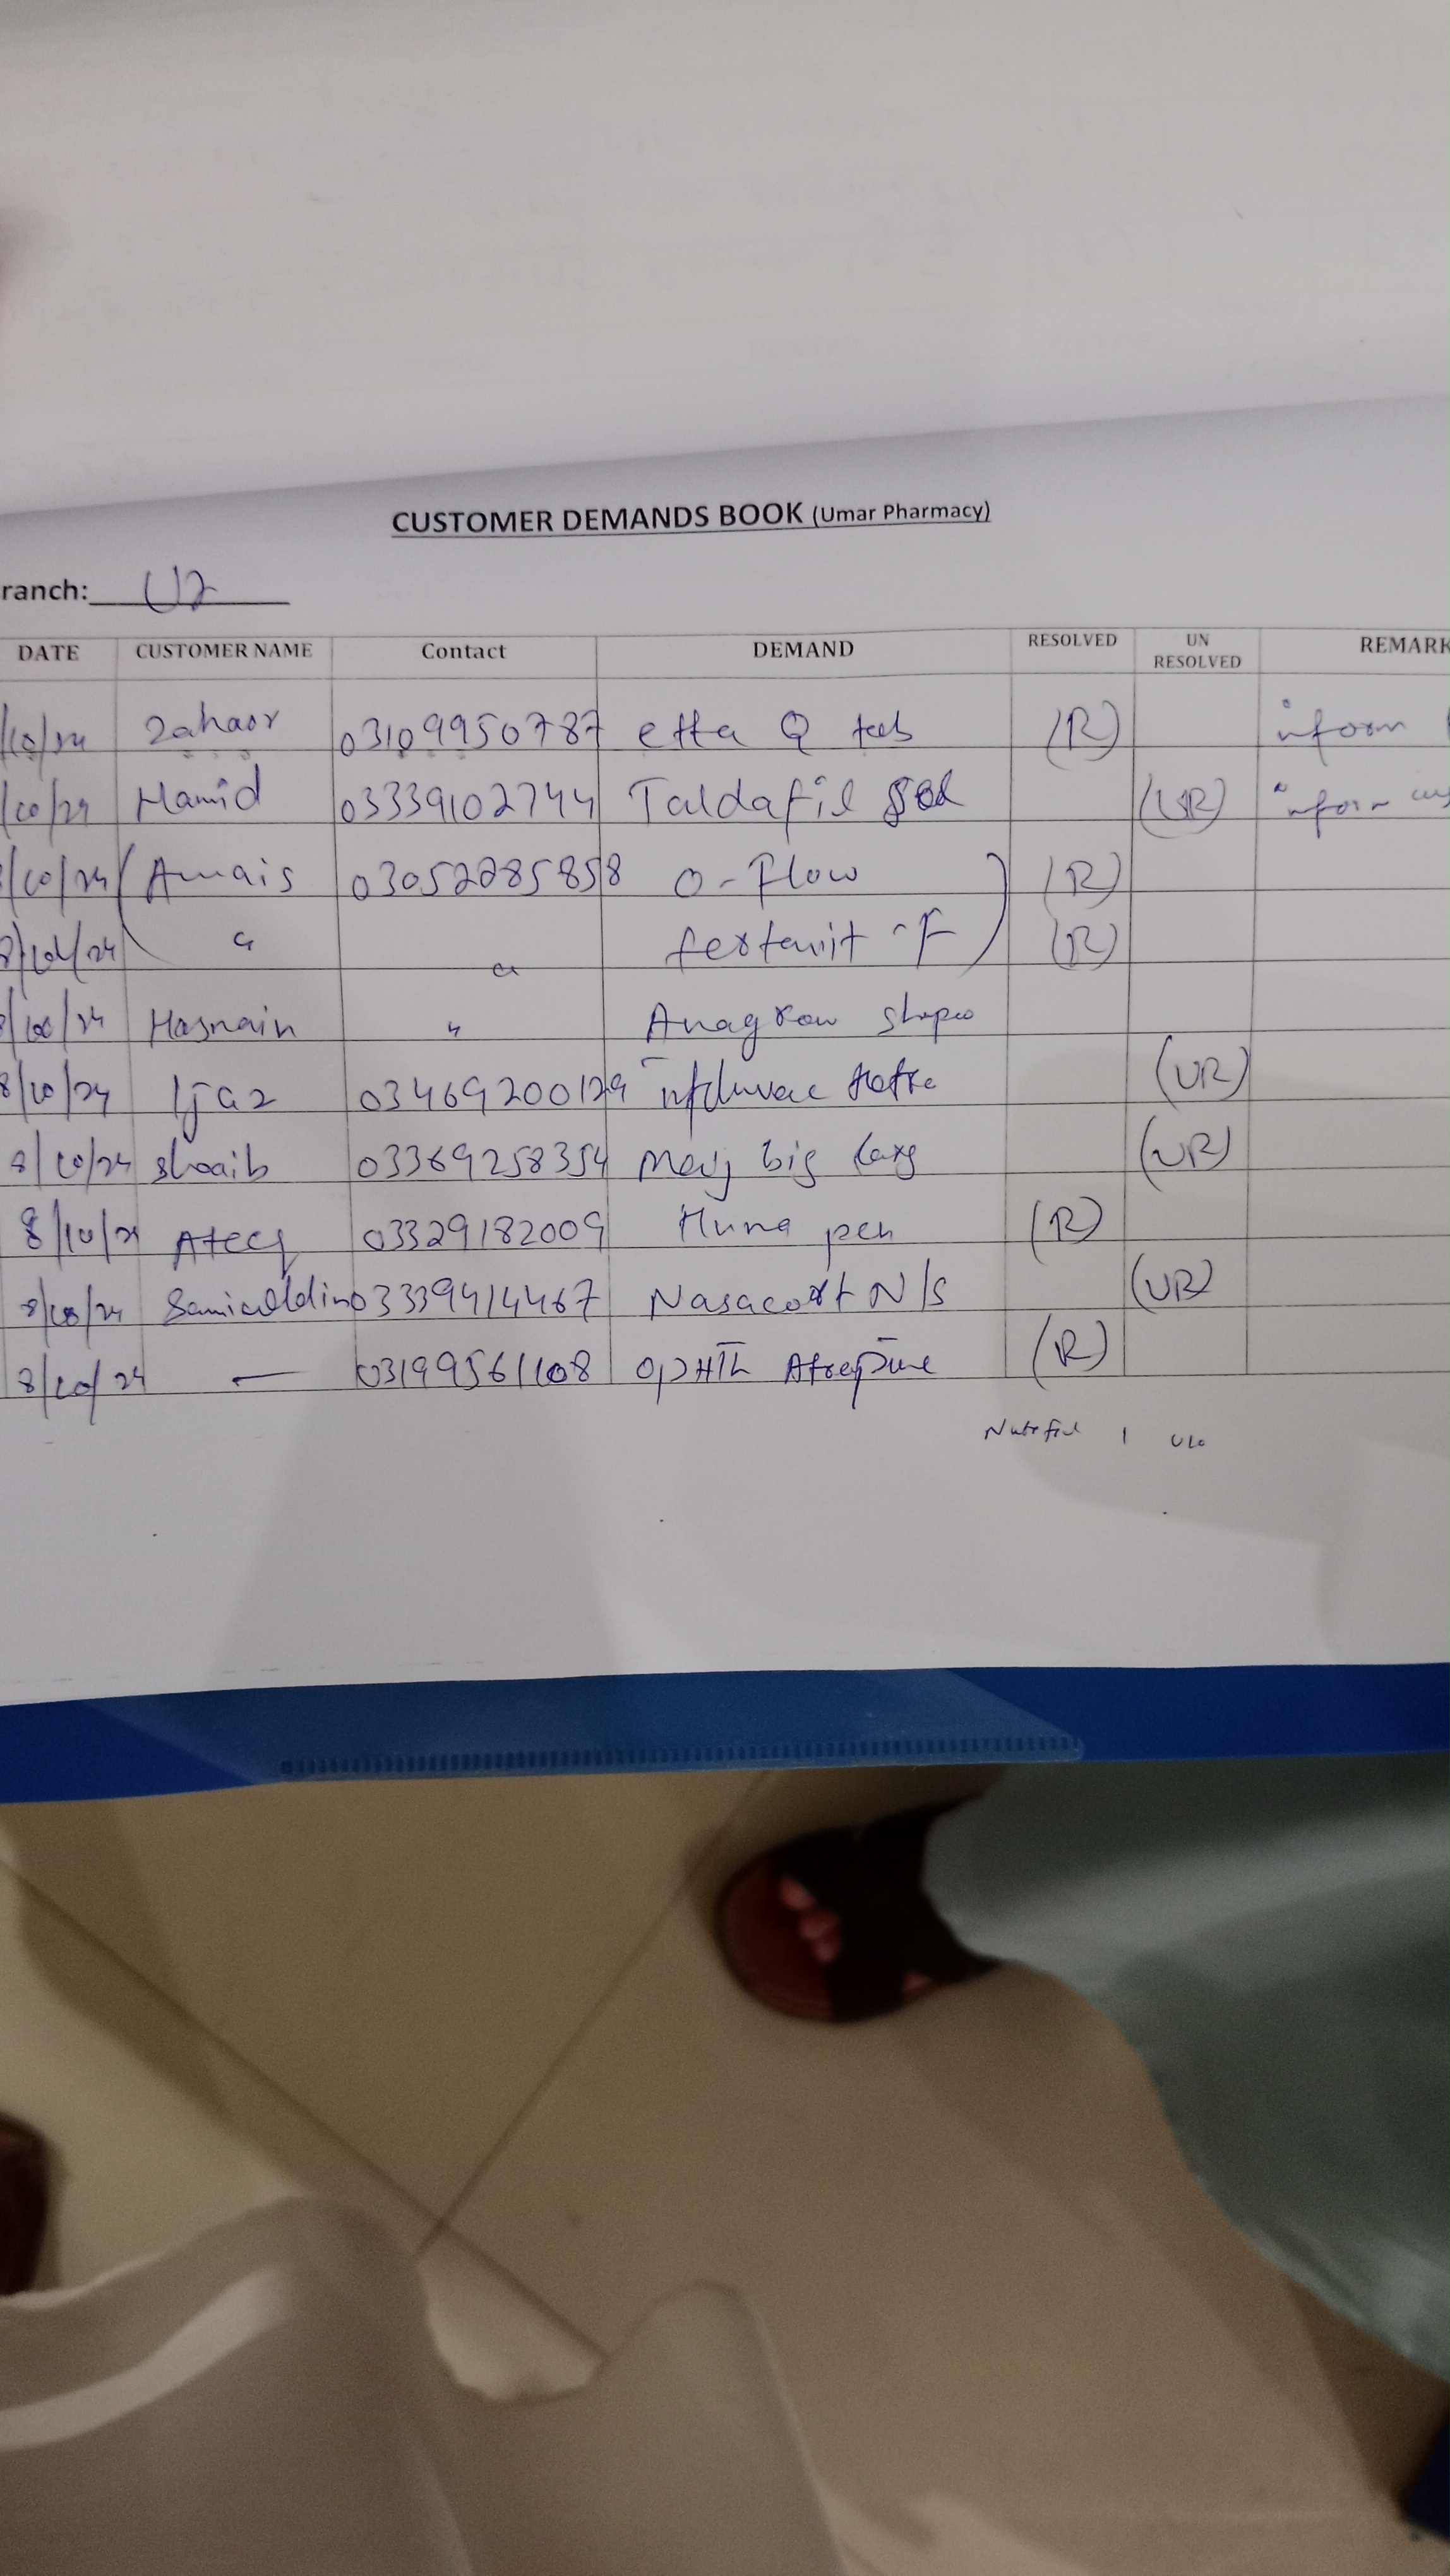 CUSTOMER DEMANDS BOOK (Umar Pharmacy)
ranch: U2
DATE CUSTOMER NAME Contact DEMAND RESOLVED UN RESOLVED REMARK
/10/24 Zahoor 03109950787 etta Q tab (R) inform
/10/24 Hamid 03339102744 Taldafil (UR) inform cus
/10/24 Awais 03052285858 O-Flow (R)
8/10/24 " " F (R)
8/10/24 Hasnain " Anagrow
8/10/24 Ijaz 03469200129 (UR)
8/10/24 Shoaib 03369258354 big (UR)
8/10/24 Ateeq 03329182009 Huma pen (R)
8/10/24 Samiulddin 03339414467 Nasacort N/S (UR)
8/10/24 — 03199561108 OPHTH Atropine (R)